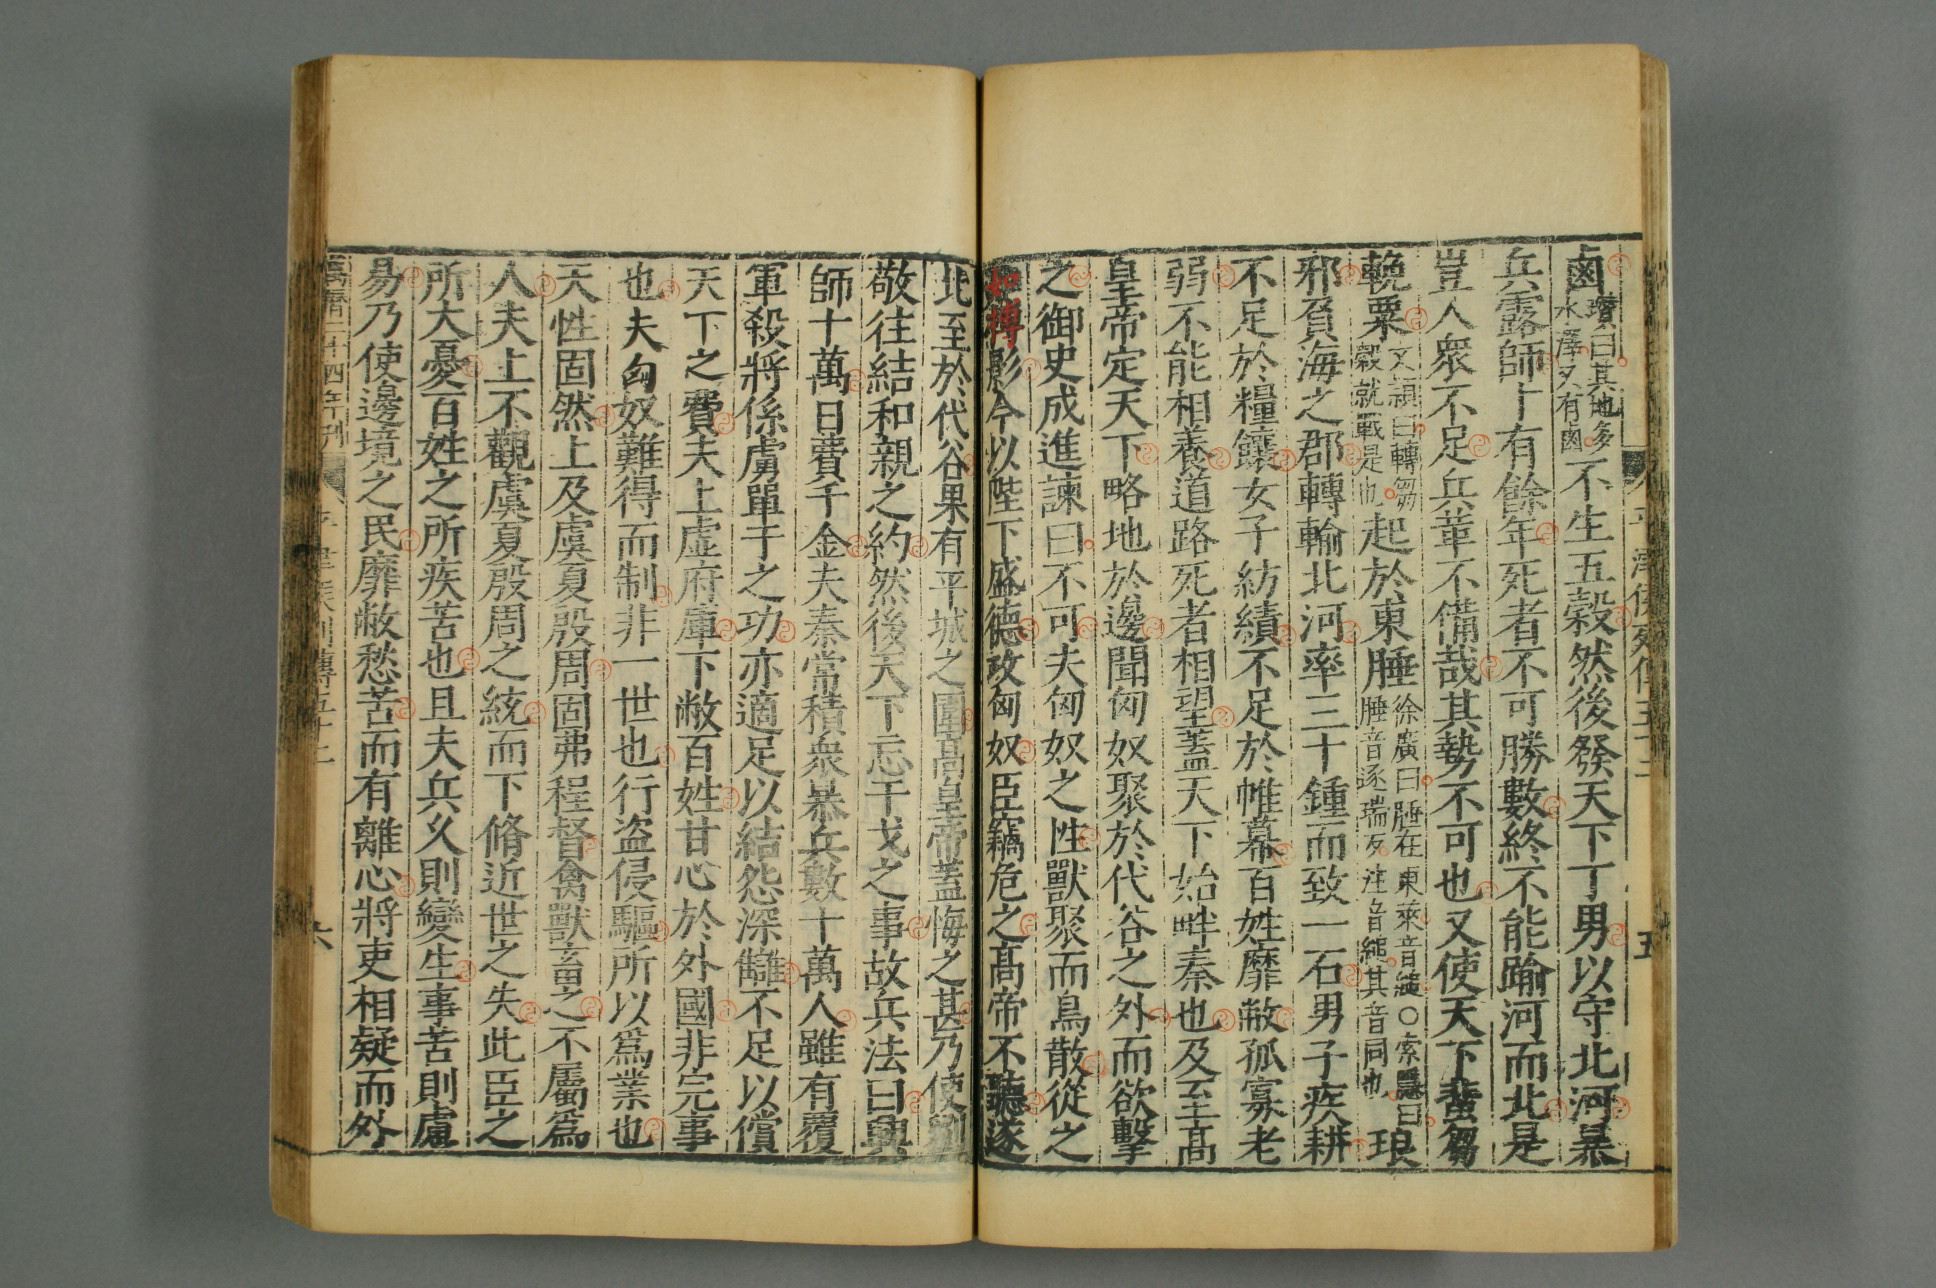 鹵瓚曰其地多水澤又有鹵不生五穀然後發天下丁男以守北河暴
兵露師十有餘年死者不可勝數終不能踰河而北是
豈人衆不足兵革不備哉其勢不可也又使天下蜚芻
輓粟文穎曰轉芻穀就戰是也起於東腄徐廣曰腄在東萊音縋○索隱曰腄音逐瑞反注音縋其音同也琅
邪負海之郡轉輸北河率三十鍾而致一石男子疾耕
不足於糧饟女子紡績不足於帷幕百姓靡敝孤寡老
弱不能相養道路死者相望蓋天下始畔秦也及至高
皇帝定天下略地於邊聞匈奴聚於代谷之外而欲擊
之御史成進諫曰不可夫匈奴之性獸聚而鳥散從之
如搏影今以陛下盛德攻匈奴臣竊危之高帝不聽遂
北至於代谷果有平城之圍高皇帝蓋悔之甚乃使劉
敬往結和親之約然後天下忘干戈之事故兵法曰興
師十萬日費千金夫秦常積衆暴兵數十萬人雖有覆
軍殺將係虜單于之功亦適足以結怨深讎不足以償
天下之費夫上虛府庫下敝百姓甘心於外國非完事
也夫匈奴難得而制非一世也行盜侵驅所以爲業也
天性固然上及虞夏殷周固弗程督禽獸畜之不屬爲
人夫上不觀虞夏殷周之統而下脩近世之失此臣之
所大憂百姓之所疾苦也且夫兵久則變生事苦則慮
易乃使邊境之民靡敝愁苦而有離心將吏相疑而外
萬曆二十四年刊 平津侯列傳五十二 六